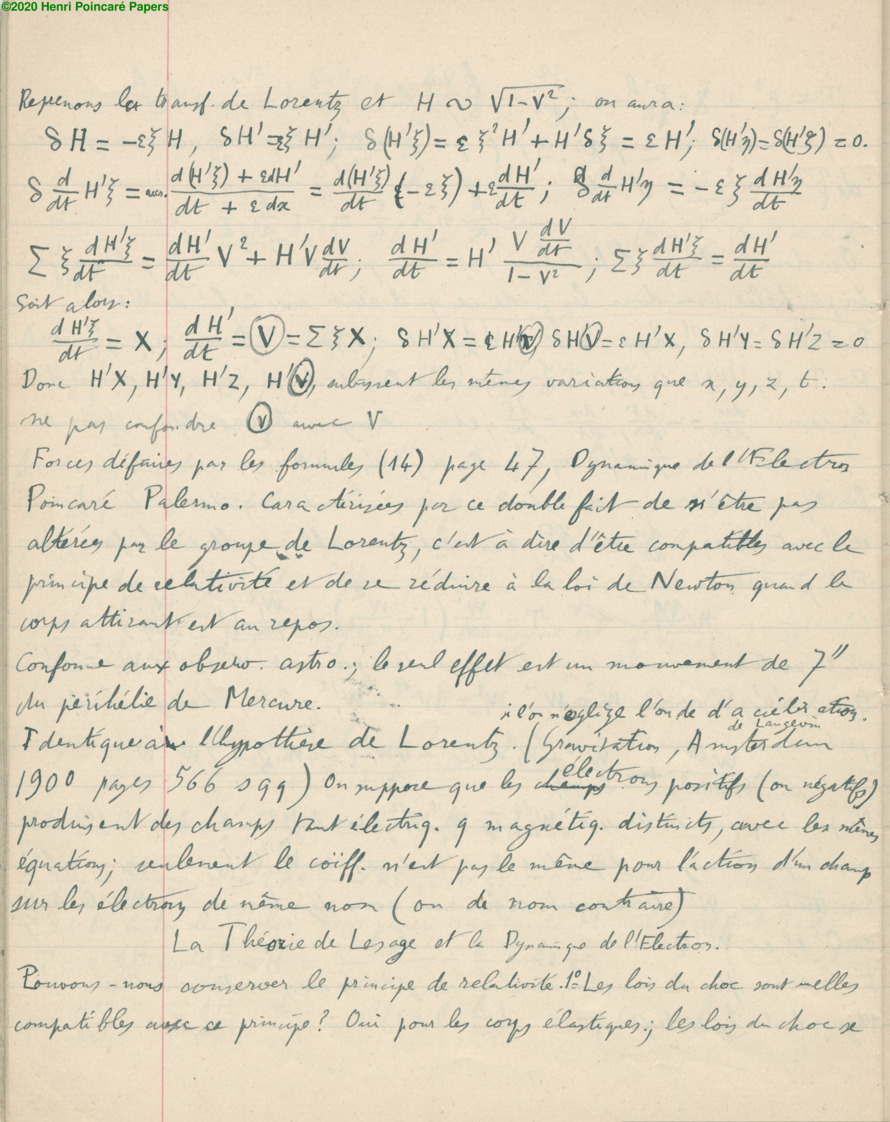 ©2020 Henri Poincaré Papers
Reprenons la transf. de Lorentz et H ∾ √(1-V²) ; on aura:
δH = -εξH, δH' = εξH'; δ(H'ξ) = εξ²H' + H'δξ = εH'; δ(H'η) = δ(H'ζ) = 0.
δ d/dt H'ξ = accr. (d(H'ξ) + εdH')/(dt + εdx) = d(H'ξ)/dt (-εξ) + ε dH'/dt ; δ d/dt H'η = -εξ dH'η/dt
Σ ξ dH'ξ/dt = dH'/dt V² + H'V dV/dt ; dH'/dt = H' (V dV/dt)/(1-V²) ; Σξ dH'ξ/dt = dH'/dt
Soit alors:
dH'ξ/dt = X ; dH'/dt = Ⓥ = ΣξX ; δH'X = εH'Ⓥ, δH'Ⓥ = εH'X, δH'Y = δH'Z = 0
Donc H'X, H'Y, H'Z, H'Ⓥ, subissent les mêmes variations que x, y, z, t.
ne pas confondre Ⓥ avec V
Forces définies par les formules (14) page 47, Dynamique de l'Electron
Poincaré Palermo. Caractérisées par ce double fait de n'être pas
altérées par le groupe de Lorentz, c'est à dire d'être compatibles avec le
principe de relativité et de se réduire à la loi de Newton quand le
corps attirant est au repos.
Conforme aux observ. astro.; le seul effet est un mouvement de 7"
du périhélie de Mercure.
si l'on néglige l'onde d'accélération.
de Langevin
Identique à l'hypothèse de Lorentz. (Gravitation, Amsterdam
1900 pages 566 sqq) On suppose que les electrons positifs (ou négatifs)
produisent des champs tant électriq. q magnétiq. distincts, avec les mêmes
équations; seulement le coëff. n'est pas le même pour l'action d'un champ
sur les électrons de même nom (ou de nom contraire)
La Théorie de Lesage et la Dynamique de l'Electron.
Pouvons-nous conserver le principe de relativité. 1º Les lois du choc sont-elles
compatibles avec ce principe? Oui pour les corps élastiques; les lois du choc se